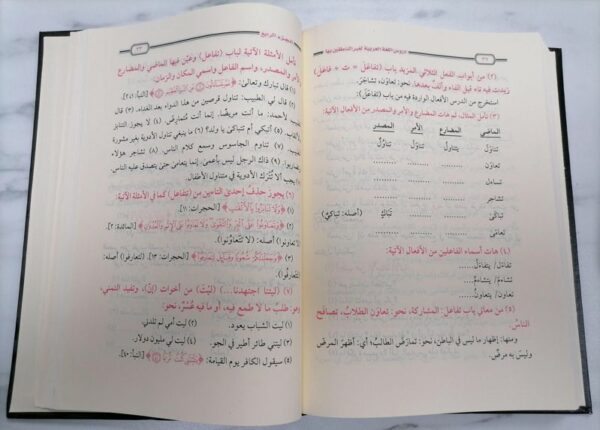 دروس اللغة العربية لغير الناطقين بها
٣٢
(٢) من أبواب الفعل الثلاثي المزيد باب (تفاعَلَ = ت + فاعَلَ)
زيدت فيه تاء قبل الفاء وألف بعدها، نحو: تعاوَن، تشاجَرَ.
استخرج من الدرس الأفعال الواردة فيه من باب (تفاعَل):
(٣) تأمل المثال، ثم هات المضارع والأمر والمصدر من الأفعال الآتية:
الماضي المضارع الأمر المصدر
تناوَلَ يتناوَلُ تناوَلْ تناوُلٌ
تعاوَن ........ ........ ........
تساءَل ........ ........ ........
تشاجر ........ ........ ........
تباكى ........ تَباكَ (أصله: تباكُيٌ)
تعامَى ........ ........ ........
(٤) هات أسماء الفاعلين من الأفعال الآتية:
تفاءَل / يتفاءَل......
تشاءَمَ/ يتشاءَمُ......
تعاون/ يتعاونُ......
(٥) من معاني باب تفاعل: المشاركة، نحو: تعاوَن الطلابُ، تصافَح
الناسُ.
ومنها: إظهار ما ليس في الباطن، نحو: تمارَضَ الطالبُ؛ أي: أظهرَ المرضَ
وليس به مرضٌ.
الجزء الرابع
٣٣
تأمل الأمثلة الآتية لباب (تفاعل) وعيّن فيها الماضي والمضارع
والأمر والمصدر، واسم الفاعل واسمي المكان والزمان:
(١) قال تبارك وتعالى:
[النبأ: ١، ٢].
(٢) قال لي الطبيب: تناول قرصين من هذا الدواء بعد الغداء.
(٥) أتبكي أم تتباكى يا ولد؟ (٦) ما ينبغي تناول الأدوية بغير مشورة
(٧) تناوم الجاسوس وسمع كلام الناس. (٨) تشاجر هؤلاء
ذاك الرجل ليس بأعمى، إنما يتعامى حتى يتصدق عليه الناس.
يجب ألا تُتْرك الأدوية في متناول الأطفال.
(٦) يجوز حذف إحدى التاءين من (تتفاعل) كما في الأمثلة الآتية:
(١) ﴿وَلَا تَنَابَزُوا بِالْأَلْقَابِ﴾ [الحجرات: ١١].
﴿وَتَعَاوَنُوا عَلَى الْبِرِّ وَالتَّقْوَىٰ وَلَا تَعَاوَنُوا عَلَى الْإِثْمِ وَالْعُدْوَانِ﴾ [المائدة: ٢].
(لا تعاونوا) أصله: (لا تتعاونوا).
﴿وَجَعَلْنَاكُمْ شُعُوبًا وَقَبَائِلَ لِتَعَارَفُوا﴾ [الحجرات: ١٣]. (لتعارفوا) أصله:
(لتتعارفوا).
(٧) (ليتنا اجتهدنا...) (ليْتَ) من أخوات (إنّ)، وتفيد التمني،
وهو: طلبُ ما لا طمع فيه، أو ما فيه عُسْرٌ، نحو:
(١) ليت الشباب يعود. (٢) ليت أمي لم تلدني.
(٣) ليتني طائر أطير في الجو. (٤) ليت لي مليون دولار.
(٥) سيقول الكافر يوم القيامة: ﴿يَا لَيْتَنِي كُنْتُ تُرَابًا﴾ [النبأ: ٤٠].